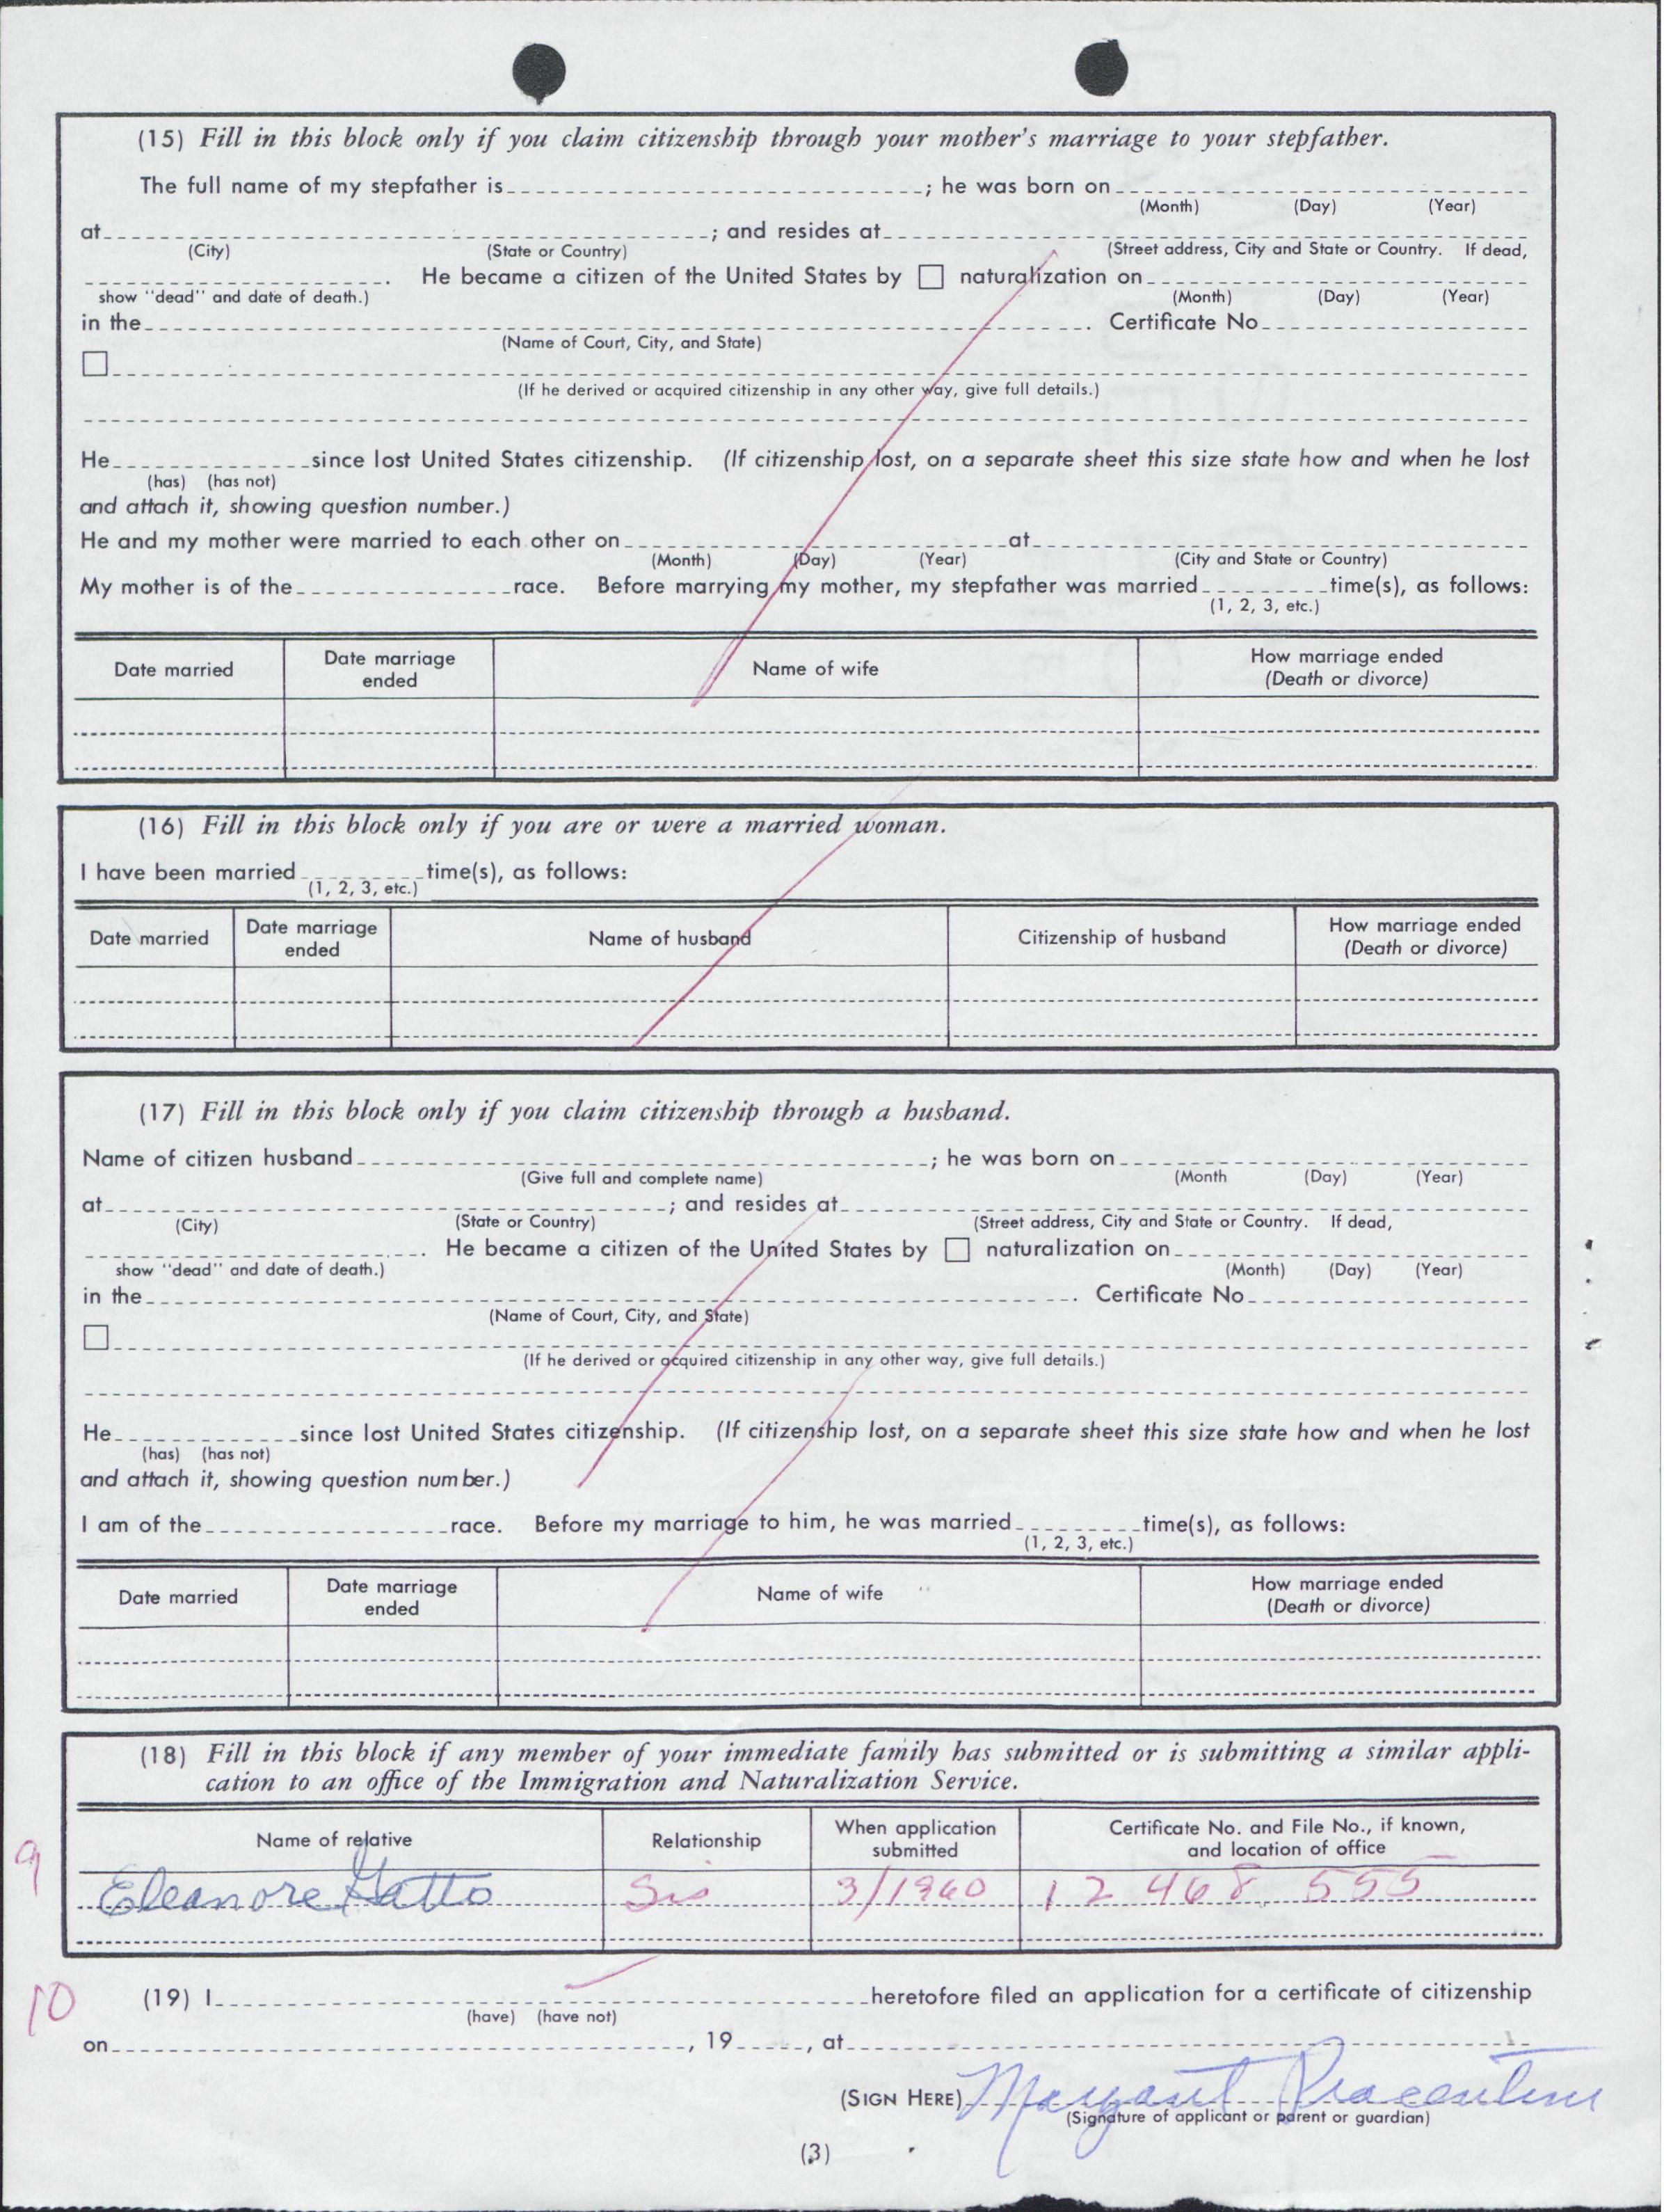 (15) Fill in this block only if you claim citizenship through your mother's marriage to your stepfather.
The full name of my stepfather is ; he was born on
(Month) (Day) (Year)
at ; and resides at
(City) (State or Country) (Street address, City and State or Country. If dead,
. He became a citizen of the United States by ☐ naturalization on
show "dead" and date of death.) (Month) (Day) (Year)
in the . Certificate No.
(Name of Court, City, and State)
☐
(If he derived or acquired citizenship in any other way, give full details.)
He since lost United States citizenship. (If citizenship lost, on a separate sheet this size state how and when he lost
(has) (has not)
and attach it, showing question number.)
He and my mother were married to each other on at
(Month) (Day) (Year) (City and State or Country)
My mother is of the race. Before marrying my mother, my stepfather was married time(s), as follows:
(1, 2, 3, etc.)
Date married Date marriage ended Name of wife How marriage ended (Death or divorce)
(16) Fill in this block only if you are or were a married woman.
I have been married time(s), as follows:
(1, 2, 3, etc.)
Date married Date marriage ended Name of husband Citizenship of husband How marriage ended (Death or divorce)
(17) Fill in this block only if you claim citizenship through a husband.
Name of citizen husband ; he was born on
(Give full and complete name) (Month (Day) (Year)
at ; and resides at
(City) (State or Country) (Street address, City and State or Country. If dead,
. He became a citizen of the United States by ☐ naturalization on
show "dead" and date of death.) (Month) (Day) (Year)
in the . Certificate No.
(Name of Court, City, and State)
☐
(If he derived or acquired citizenship in any other way, give full details.)
He since lost United States citizenship. (If citizenship lost, on a separate sheet this size state how and when he lost
(has) (has not)
and attach it, showing question number.)
I am of the race. Before my marriage to him, he was married time(s), as follows:
(1, 2, 3, etc.)
Date married Date marriage ended Name of wife How marriage ended (Death or divorce)
(18) Fill in this block if any member of your immediate family has submitted or is submitting a similar appli-
cation to an office of the Immigration and Naturalization Service.
Name of relative Relationship When application submitted Certificate No. and File No., if known, and location of office
9 Eleanore Gatto Sis 3/1960 12 468 555
10 (19) I heretofore filed an application for a certificate of citizenship
(have) (have not)
on , 19 , at
(SIGN HERE) Margaret Piacentini
(Signature of applicant or parent or guardian)
(3)